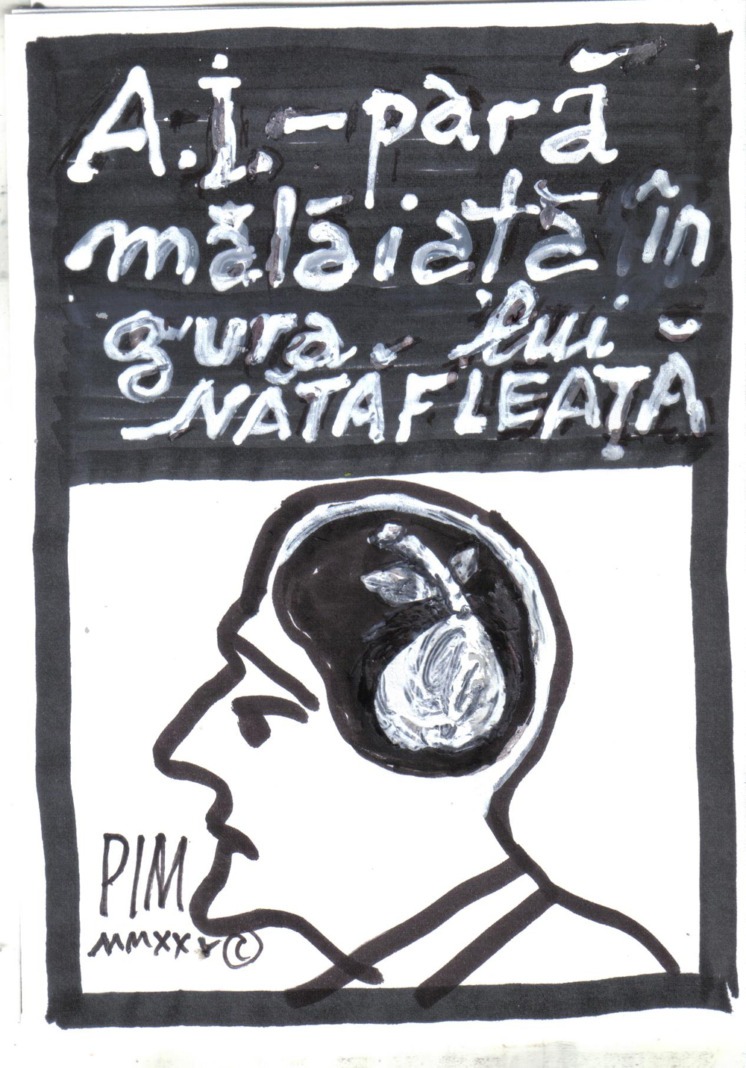 A.I.-pară
mălăiață în
gura lui
NĂTĂFLEAȚĂ
PIM
MMXXV ©